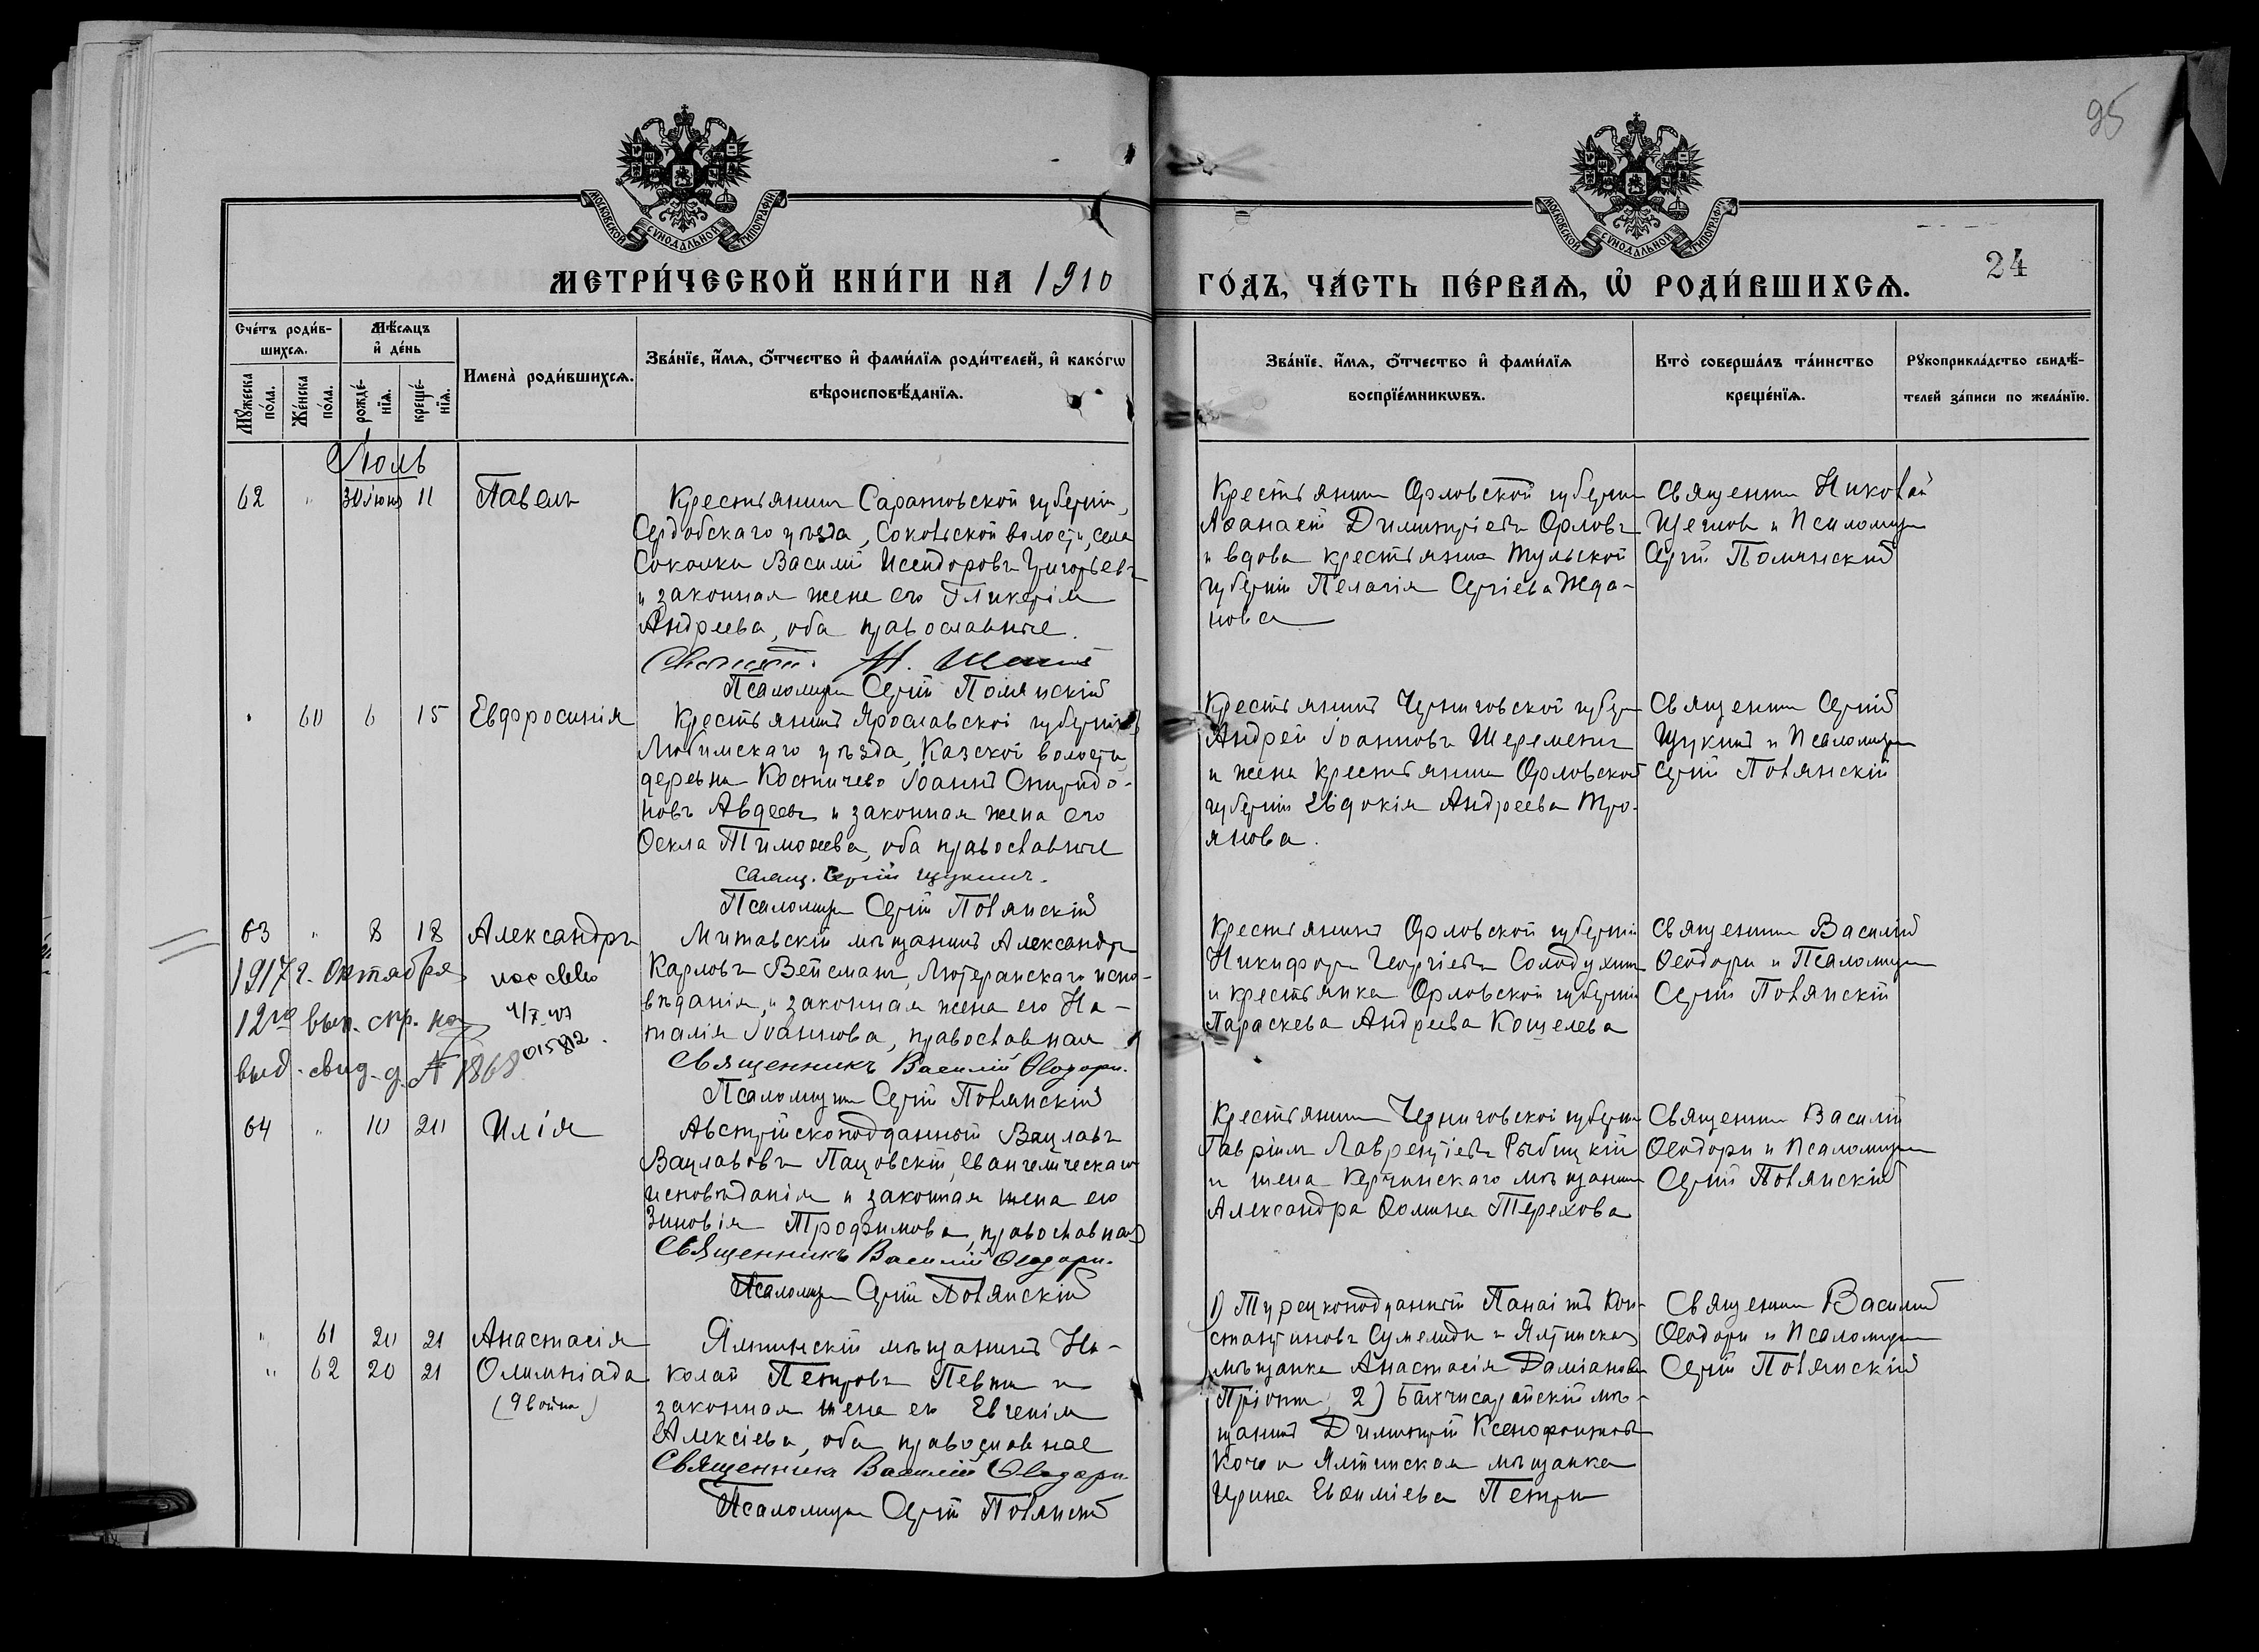 95
МОСКОВСКОЙ СУНОДАЛЬНОЙ ТИПОГРАФІИ.
МОСКОВСКОЙ СУНОДАЛЬНОЙ ТИПОГРАФІИ.
МЕТРИ́ЧЕСКОЙ КНИ́ГИ НА 1910
ГО́ДЪ, ЧА́СТЬ ПЕ́РВАѦ, Ѡ РОДИ́ВШИХСѦ.
24
Сче́тъ роди́в-
шихсѧ.
Мѣ́сѧцъ
и де́нь
Мꙋ́жеска
по́ла.
Же́нска
по́ла.
рожде́-
нїѧ.
креще́-
нїѧ.
Имена̀ роди́вшихсѧ.
Зва́нїе, и́мѧ, ѻ́тчество и фами́лїѧ роди́телей, и како́гѡ
вѣроисповѣ́данїѧ.
Зва́нїе, и́мѧ, ѻ́тчество и фами́лїѧ
воспрїе́мникѡвъ.
Кто̀ соверша́лъ та́инство
креще́нїѧ.
Рꙋкоприкла́дство свидѣ́-
телей за́писи по жела́нїю.
Іюль
62 " 30 іюня 11 Павелъ
Крестьянинъ Саратовской губерніи,
Сердобскаго уѣзда, Соковской волости, села
Соколки Василій Исидоровъ Григорьевъ
и законная жена его Гликерія
Андреева, оба православные.
Псаломщикъ Сергій Полянскій
Крестьянинъ Орловской губерніи
Аѳанасій Димитріевъ Орловъ
и вдова крестьянина Тульской
губерніи Пелагія Сергіева Жда-
нова
Священникъ Николай
Щегловъ и Псаломщикъ
Сергій Полянскій
" 60 6 15 Евфросинія
Крестьянинъ Ярославской губерніи,
Любимскаго уѣзда, Казской волости,
деревни Костичево Іоаннъ Спиридо-
новъ Авдеевъ и законная жена его
Ѳекла Тимоѳеева, оба православные
Свящ. Сергій Щукинъ.
Псаломщикъ Сергій Полянскій
Крестьянинъ Черниговской губер
Андрей Іоанновъ Шереметъ
и жена крестьянина Орловской
губерніи Евдокія Андреева Тро-
янова.
Священникъ Сергій
Щукинъ и Псаломщикъ
Сергій Полянскій
63 " 8 18 Александръ
1917 г. Октября
12го вып. спр. на
выд. свид. д. № 1868
015812
Митавскій мѣщанинъ Александръ
Карловъ Вейсманъ, Лютеранскаго испо-
вѣданія, и законная жена его На-
талія Іоаннова, православная
Священникъ Василій Ѳеодори.
Псаломщикъ Сергій Полянскій
Крестьянинъ Орловской губерніи
Никифоръ Георгіевъ Солодухинъ
и крестьянка Орловской губерніи
Параскева Андреева Кошелева
Священникъ Василій
Ѳеодори и Псаломщикъ
Сергій Полянскій
64 " 10 20 Илія
Австрійскоподданный Вацлавъ
Вацлавовъ Пацовскій, Евангелическаго
исповѣданія и законная жена его
Зиновія Трофимова, православная
Священникъ Василій Ѳеодори.
Псаломщикъ Сергій Полянскій
Крестьянинъ Черниговской губерніи
Гавріилъ Лаврентіевъ Рыбицкій
и жена Керчинскаго мѣщанина
Александра Ѳомина Терехова
Священникъ Василій
Ѳеодори и Псаломщикъ
Сергій Полянскій
" 61 20 21 Анастасія
" 62 20 21 Олимпіада
(двойни)
Ялтинскій мѣщанинъ Ни-
колай Петровъ Певти и
законная жена его Евгенія
Алексіева, оба православные
Священникъ Василій Ѳеодори
Псаломщикъ Сергій Полянскій
1) Турецкоподданный Панаіотъ Кон-
стантиновъ Сумелиди и Ялтинская
мѣщанка Анастасія Даміанова
2) Бахчисарайскій мѣ-
щанинъ Димитрій Ксенофонтовъ
Кочо и Ялтинская мѣщанка
Ирина Евѳиміева Петри
Священникъ Василій
Ѳеодори и Псаломщикъ
Сергій Полянскій